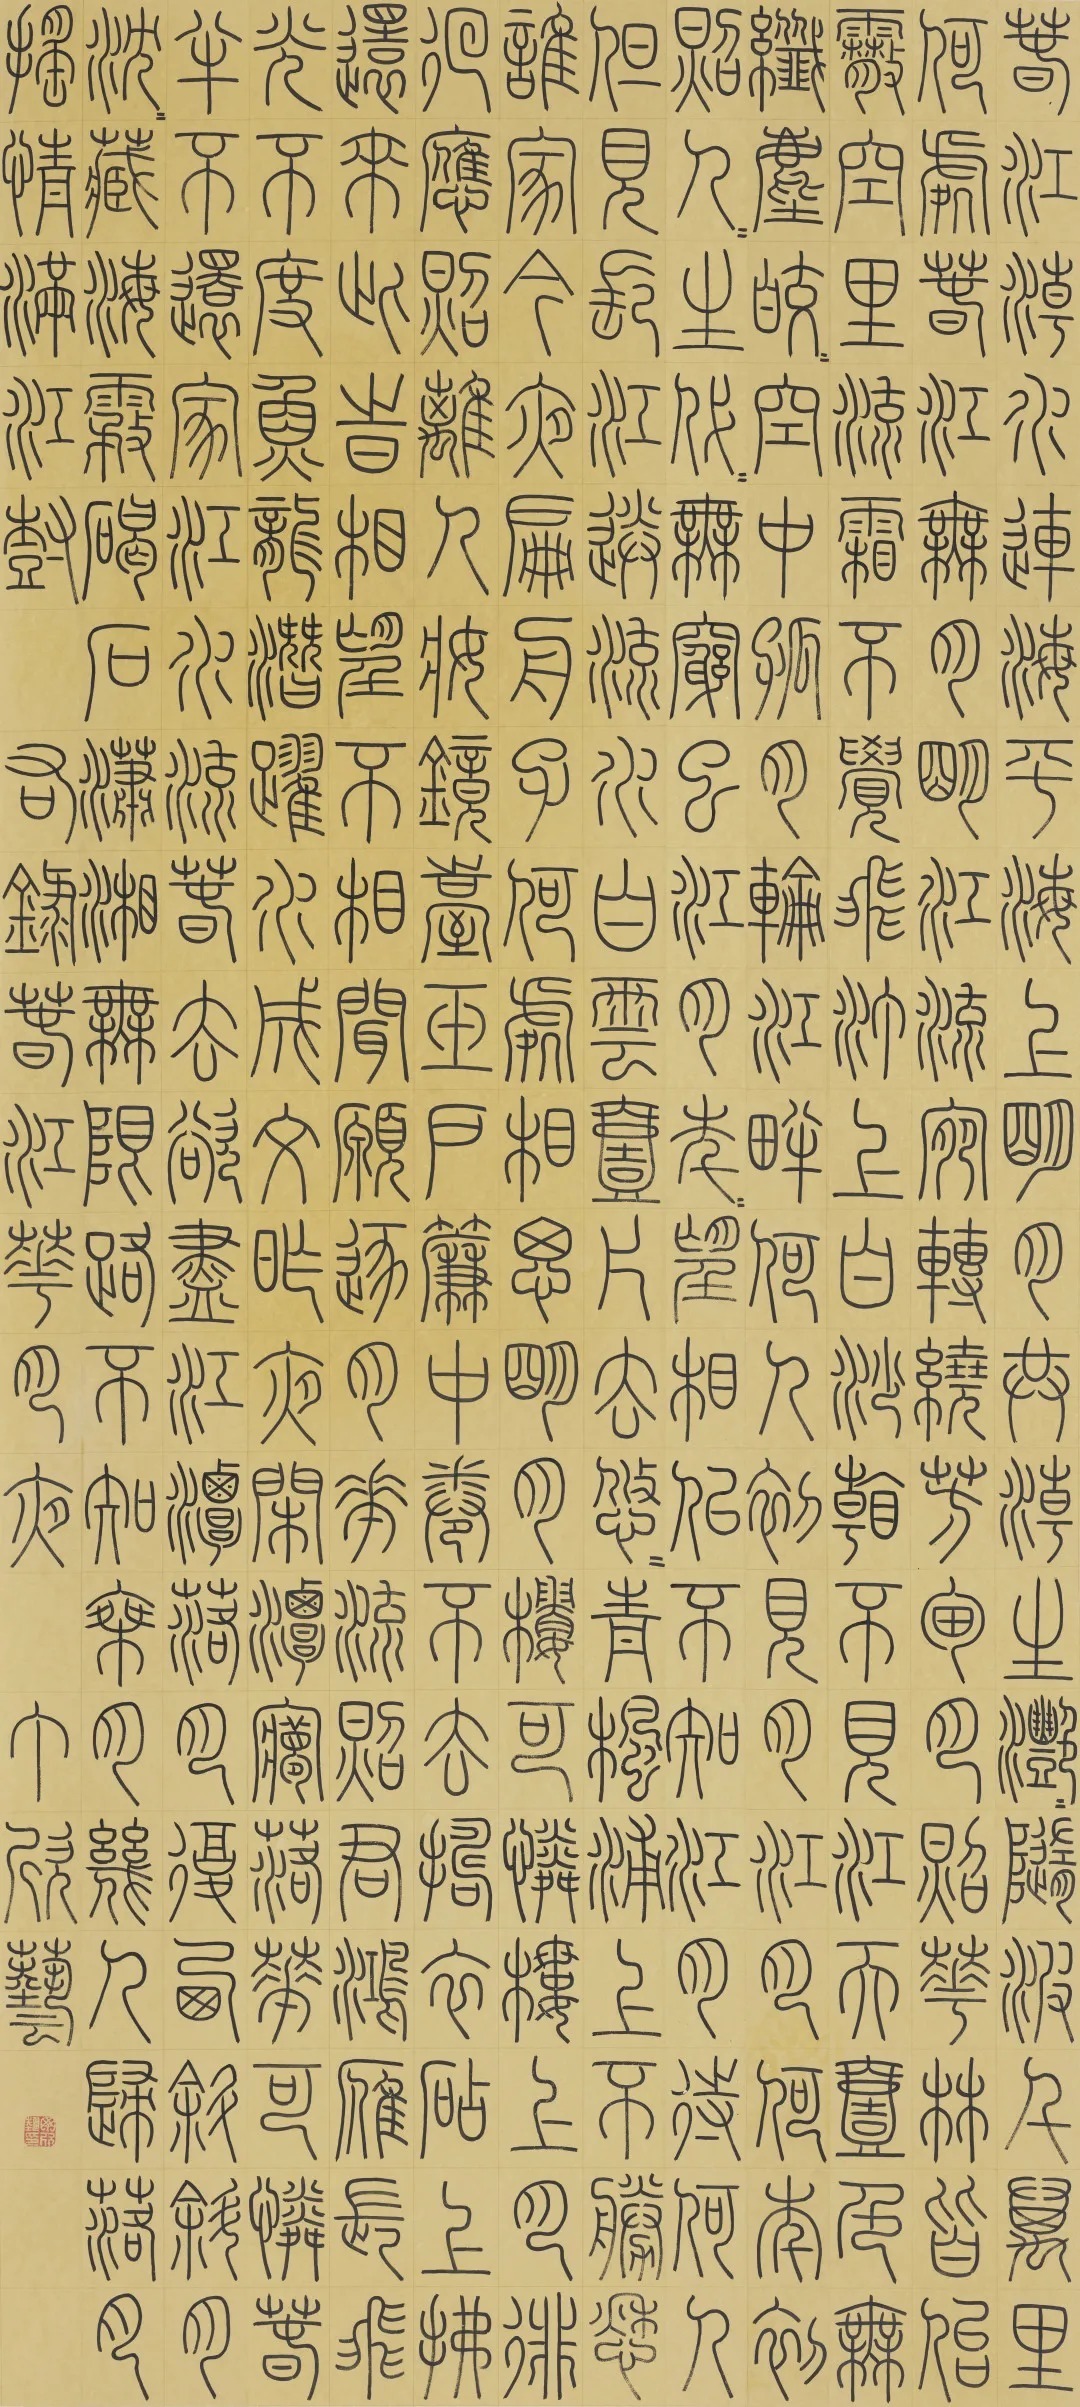 春江潮水連海平海上明月共潮生灩〻隨波千萬里
何處春江無月明江流宛轉繞芳甸月照華林皆似
霰空里流霜不覺飛汀上白沙看不見江天壹色無
纖塵皎〻空中孤月輪江畔何人初見月江月何年初
照人〻生代〻無窮已江月年〻望相似不知江月待何人
但見長江送流水白雲壹片去悠〻青楓浦上不勝愁
誰家今夜扁舟子何處相思明月樓可憐樓上月徘
徊應照離人妝鏡臺玉戶簾中卷不去擣衣砧上拂
還來此時相望不相聞願逐月華流照君鴻雁長飛
光不度魚龍潛躍水成文昨夜閒潭夢落華可憐春
半不還家江水流春去欲盡江潭落月復西斜斜月
沈〻藏海霧碣石瀟湘無限路不知乘月幾人歸落月
搖情滿江樹 右錄春江華月夜 藝